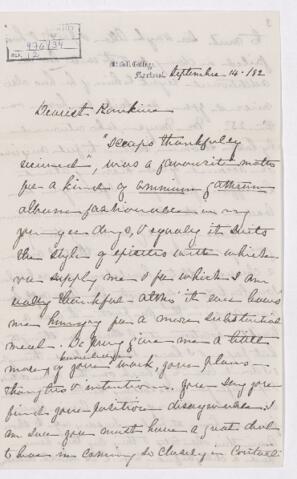 976/34
2
McGill College,
Montreal, September 14./82
Dearest Rankine
"Scraps thankfully
received", was a favourite motto
for a kind of omnium gatherum
album fashionable in my
young days, & equally it suits
the style of epistles with which
you supply me & for which I am
really thankful altho' it leaves
me hungry for a more substantial
meal. Do pray give me a little
more of yourself, your work, your plans
thoughts & intentions. You say you
find your position disagreeable. I
am sure you must have a great deal
to bear in coming so closely in contact